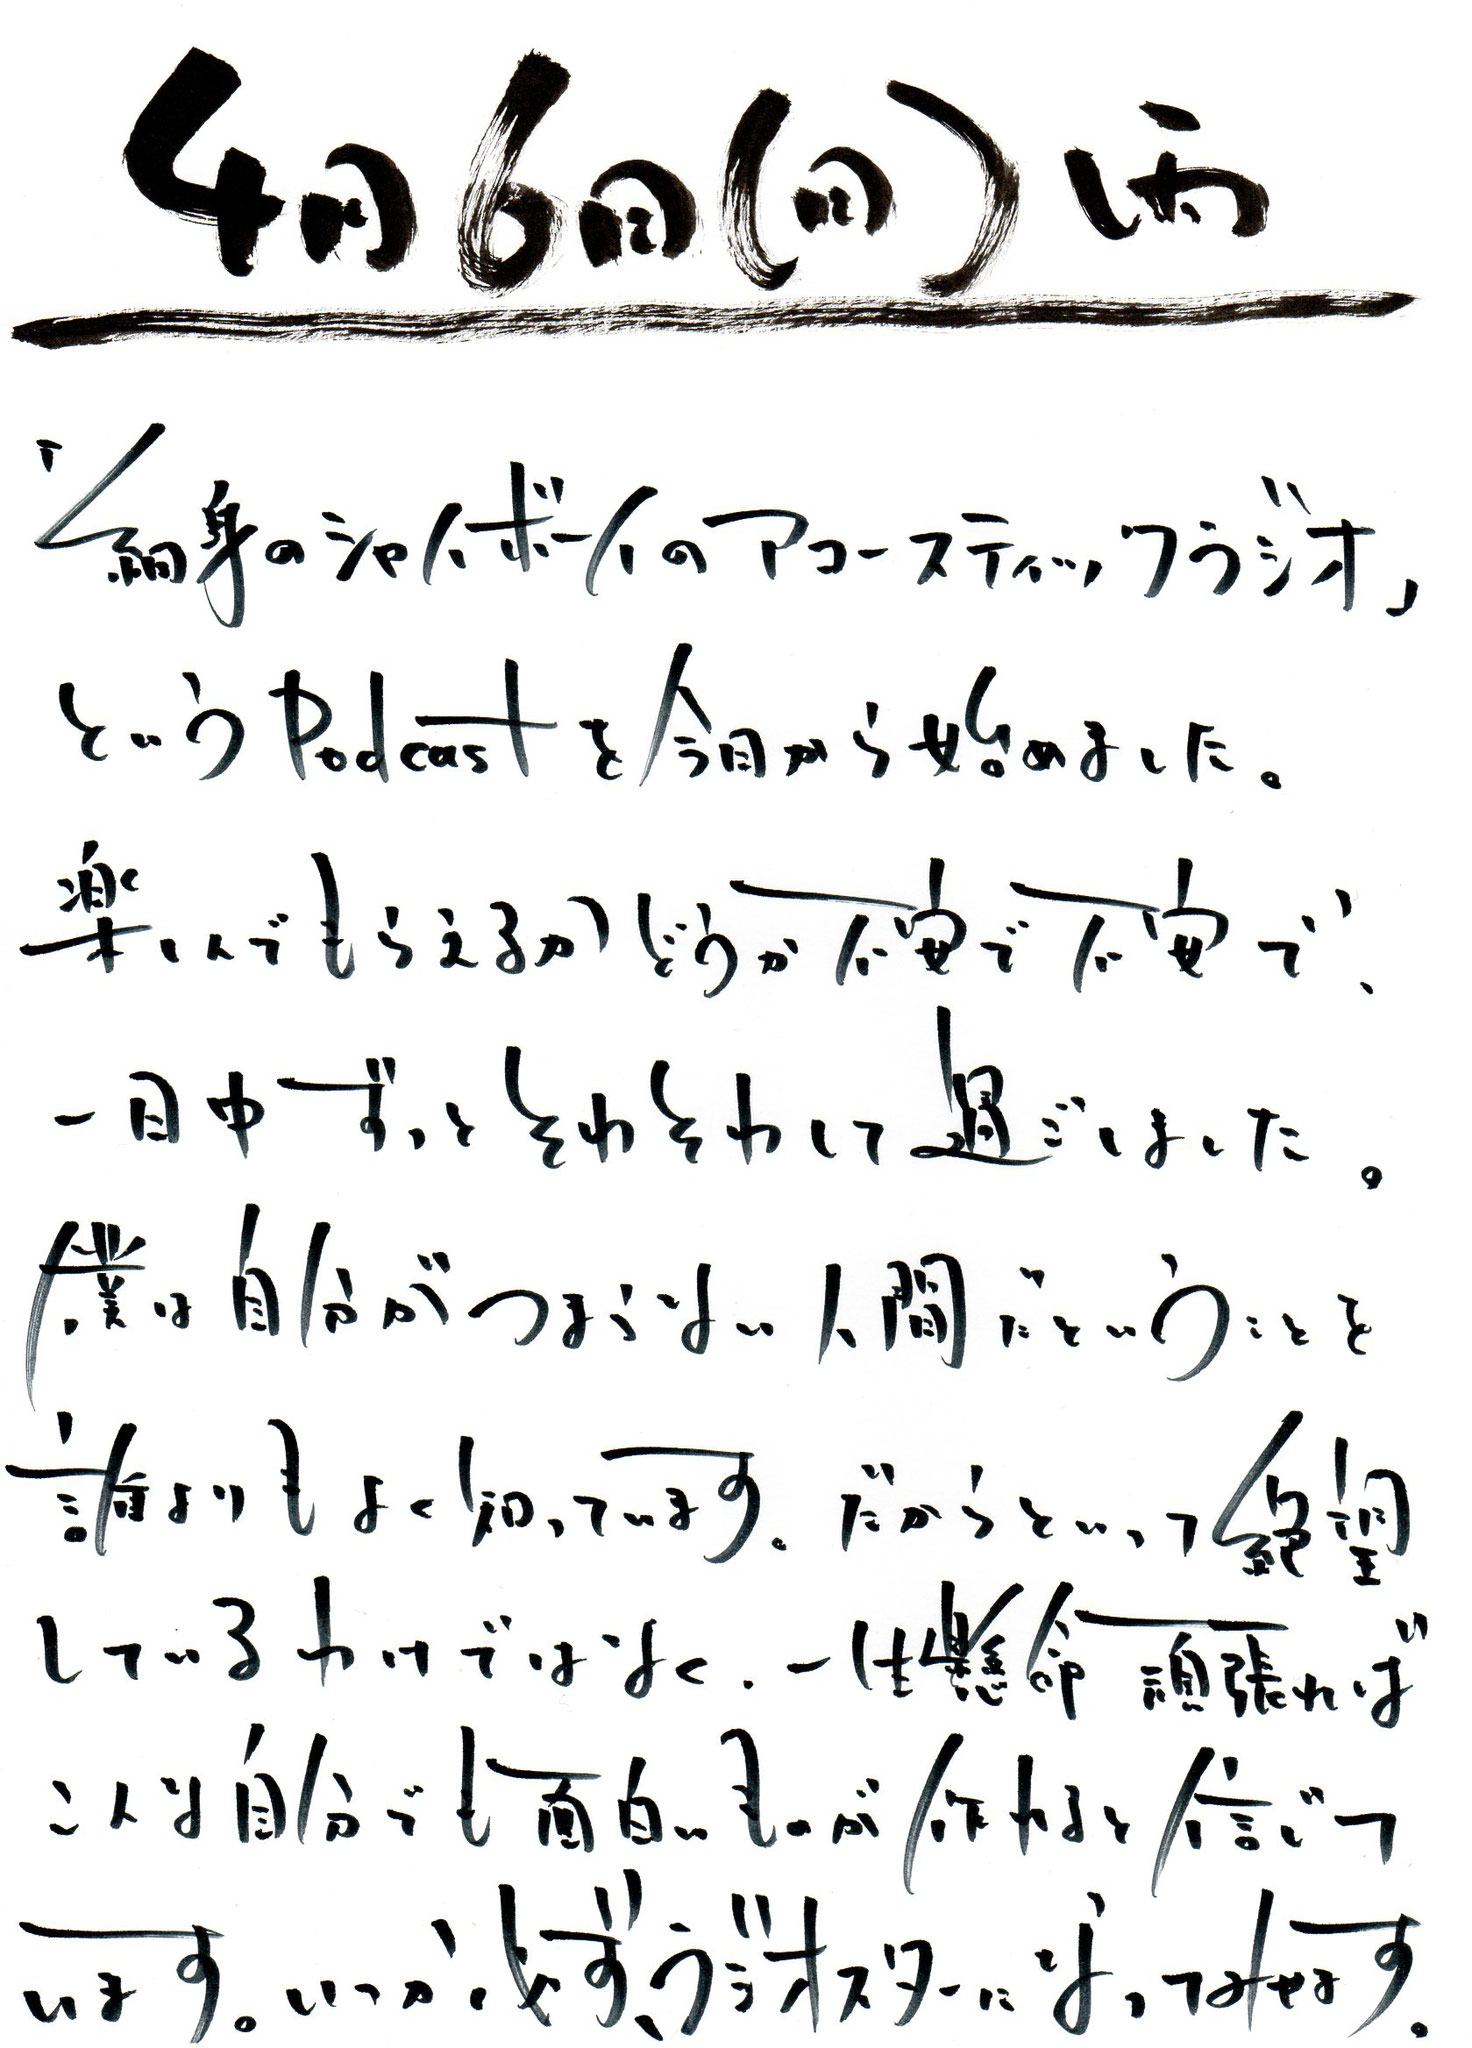 4月6日(日) 雨
「細身のシャイボーイのアコースティックラジオ」
というPodcastを今日から始めました。
楽しんでもらえるかどうか不安で不安で、
一日中ずっとそわそわして過ごしました。
僕は自分がつまらない人間だということを
誰よりもよく知っています。だからといって絶望
しているわけではなく、一生懸命頑張れば
こんな自分でも面白いものが作れると信じて
います。いつか必ず、ラジオスターになってみせます。